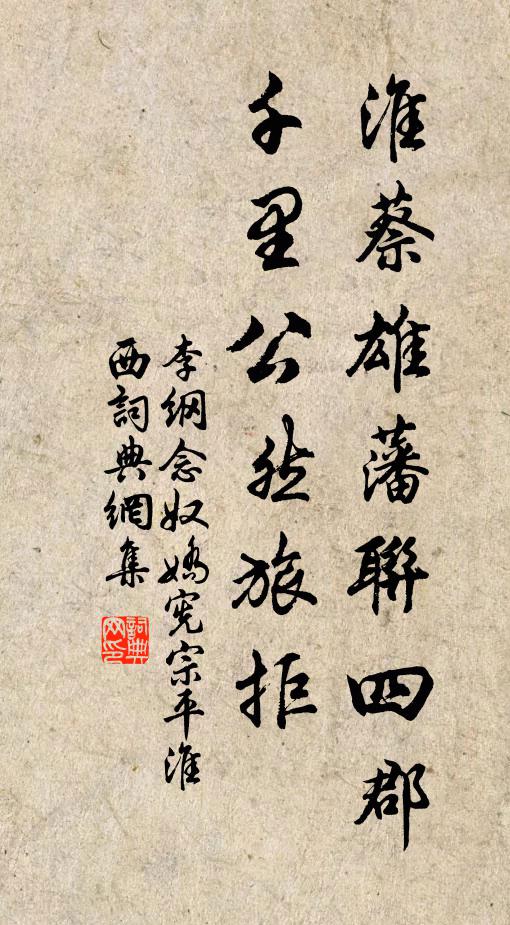 淮蔡雄藩聯四郡
千里公然旅拒
李綱念奴嬌憲宗平淮
西詞典網集
詞典網印